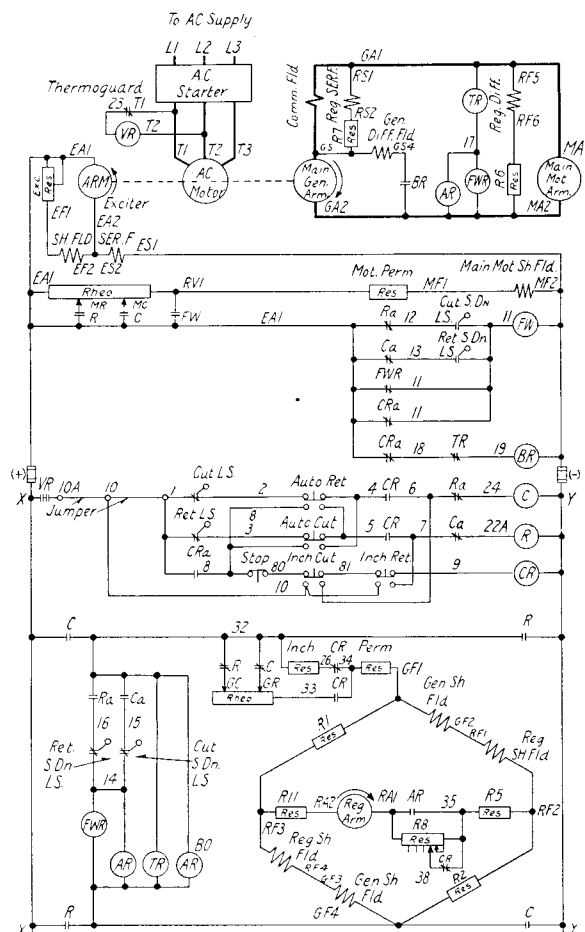 To AC Supply
L1 L2 L3
A.C. Starter
Thermoguard
23 T1
VR T2
T1 T2 T3
EA1
Exc. Res
ARM
Exciter
EA2
EF1
AC Motor
SH. FLD
EF2
SER. F
ES2
ES1
Comm. Fld
GA1
Reg. SER. F.
RS1
RS2
R7 Res
GS
Gen. Diff. Fld
GS4
Main Gen. Arm.
GA2
BR
TR
17
AR
FWR
Reg. Diff.
RF5
RF6
R6 Res
MA
Main Mot Arm.
MA2
EA1
Rheo
RV1
Mot. Perm
Res
MF1
Main Mot Sh Fld.
MF2
MR
R
MC
C
FW
EA1
Ra 12
Cut S. Dn LS.
11 FW
Ca 13
Ret S. Dn LS.
FWR 11
CRa 11
CRa 18 TR 19 BR
(+)
(-)
X
VR 10A
Jumper
10
1
Cut LS.
2
Auto Ret
4 CR 6
Ra 24 C
Y
8
Ret LS.
3
Auto Cut
5 CR 7
Ca 22A R
CRa
8
Stop
80
Inch Cut
81
Inch Ret.
9
CR
10
C
32
R
R
GC
C
GR
Rheo
Inch Res
26 CR 34
Perm Res
33 CR
GF1
Ra
16
Ca
15
Ret. S Dn LS.
14
Cut S Dn. LS
FWR
AR
TR
BO
AR
R1 Res
Gen Sh Fld
GF2
RF1
Reg SH Fld
R11 Res
RA2
Reg Arm
RA1
AR
35
R5 Res
RF2
RF3
R8 Res
CR
38
Reg Sh Fld
RF4
GF3
Gen Sh Fld
GF4
R2 Res
X
R
C
Y